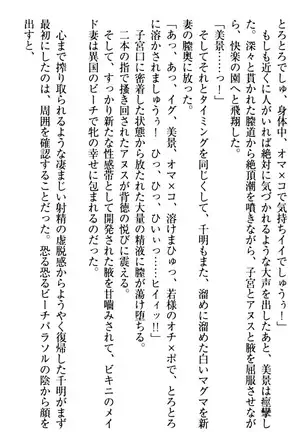 とろとろでしゅ、身体中、オマ×コで気持ちイイでしゅう！
もしも近くに人がいれば絶対に気づかれるような大声を出したあと、美景は痙攣した。深々と貫かれた膣道から絶頂潮を噴きながら、子宮とアヌスと腋を屈服させながら、快楽の園へと飛翔した。
「美景……っ！」
そしてそれとタイミングを同じくして、千明もまた、溜めに溜めた白いマグマを新妻の膣奥に放った。
「あっ、あっ、イグ、美景、オマ×コ、溶けまひゅっ、若様のオチ×ポで、とろとろに溶かされましゅうぅ！　ひっ、ひっ、ひいいっ……ヒイィッ!!」
子宮口に密着した状態から放たれた大量の精液に膣が蕩け堕ちる。
二本の指で掻き回されたアヌスが背徳の悦びに震える。
そして、すっかり新たな性感帯として開発された腋を甘噛みされて、ビキニのメイド妻は異国のビーチで牝の幸せに包まれるのだった。
心まで搾り取られるような凄まじい射精の虚脱感からようやく復帰した千明がまず最初にしたのは、周囲を確認することだった。恐る恐るビーチパラソルの陰から顔を出すと、